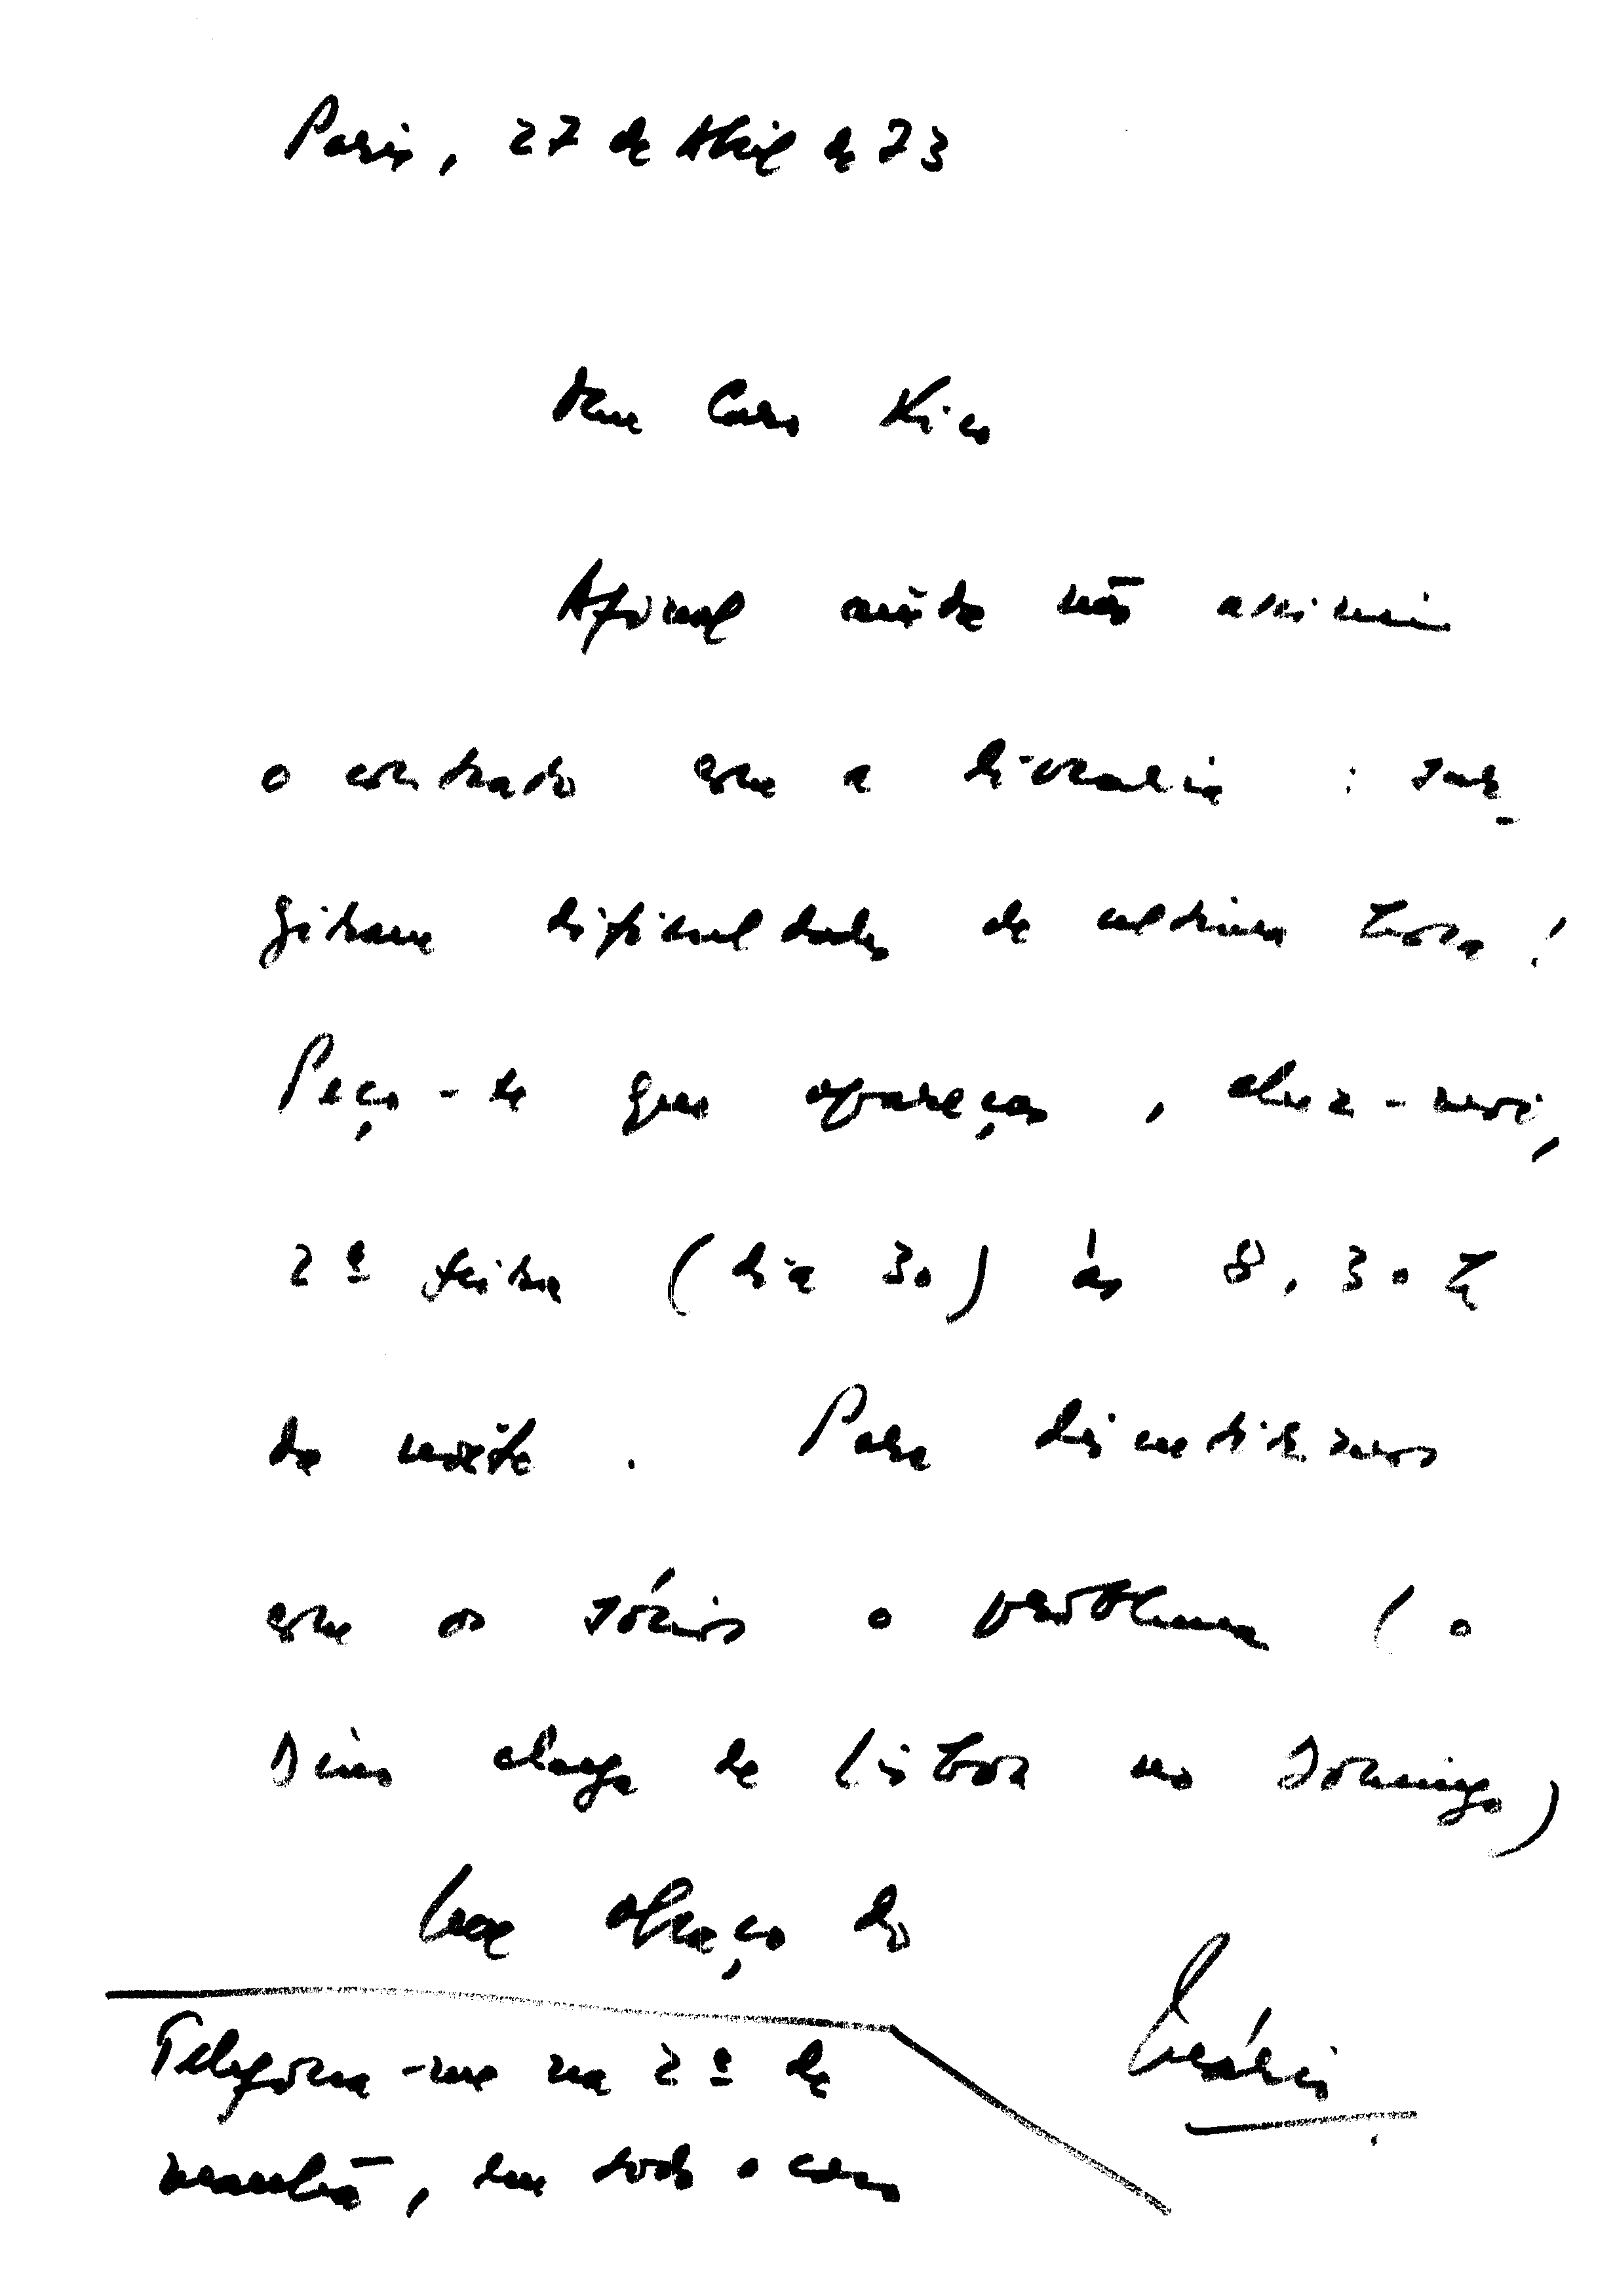 Paris, 27 de Abril de 73
Meu Caro Kico
Afinal ainda não assinei
o contrato com a livraria: sur-
giram dificuldades de ultima hora!
Peço-te que apareças, chez-moi,
2ª feira (dia 30) às 8,30 h
da noite. Para discutirmos
com os sócios o problema (o
Dias chega de Lisboa no Domingo)
Um abraço do
Mário
Telefona-me na 2ª de
manhã, em todo o caso